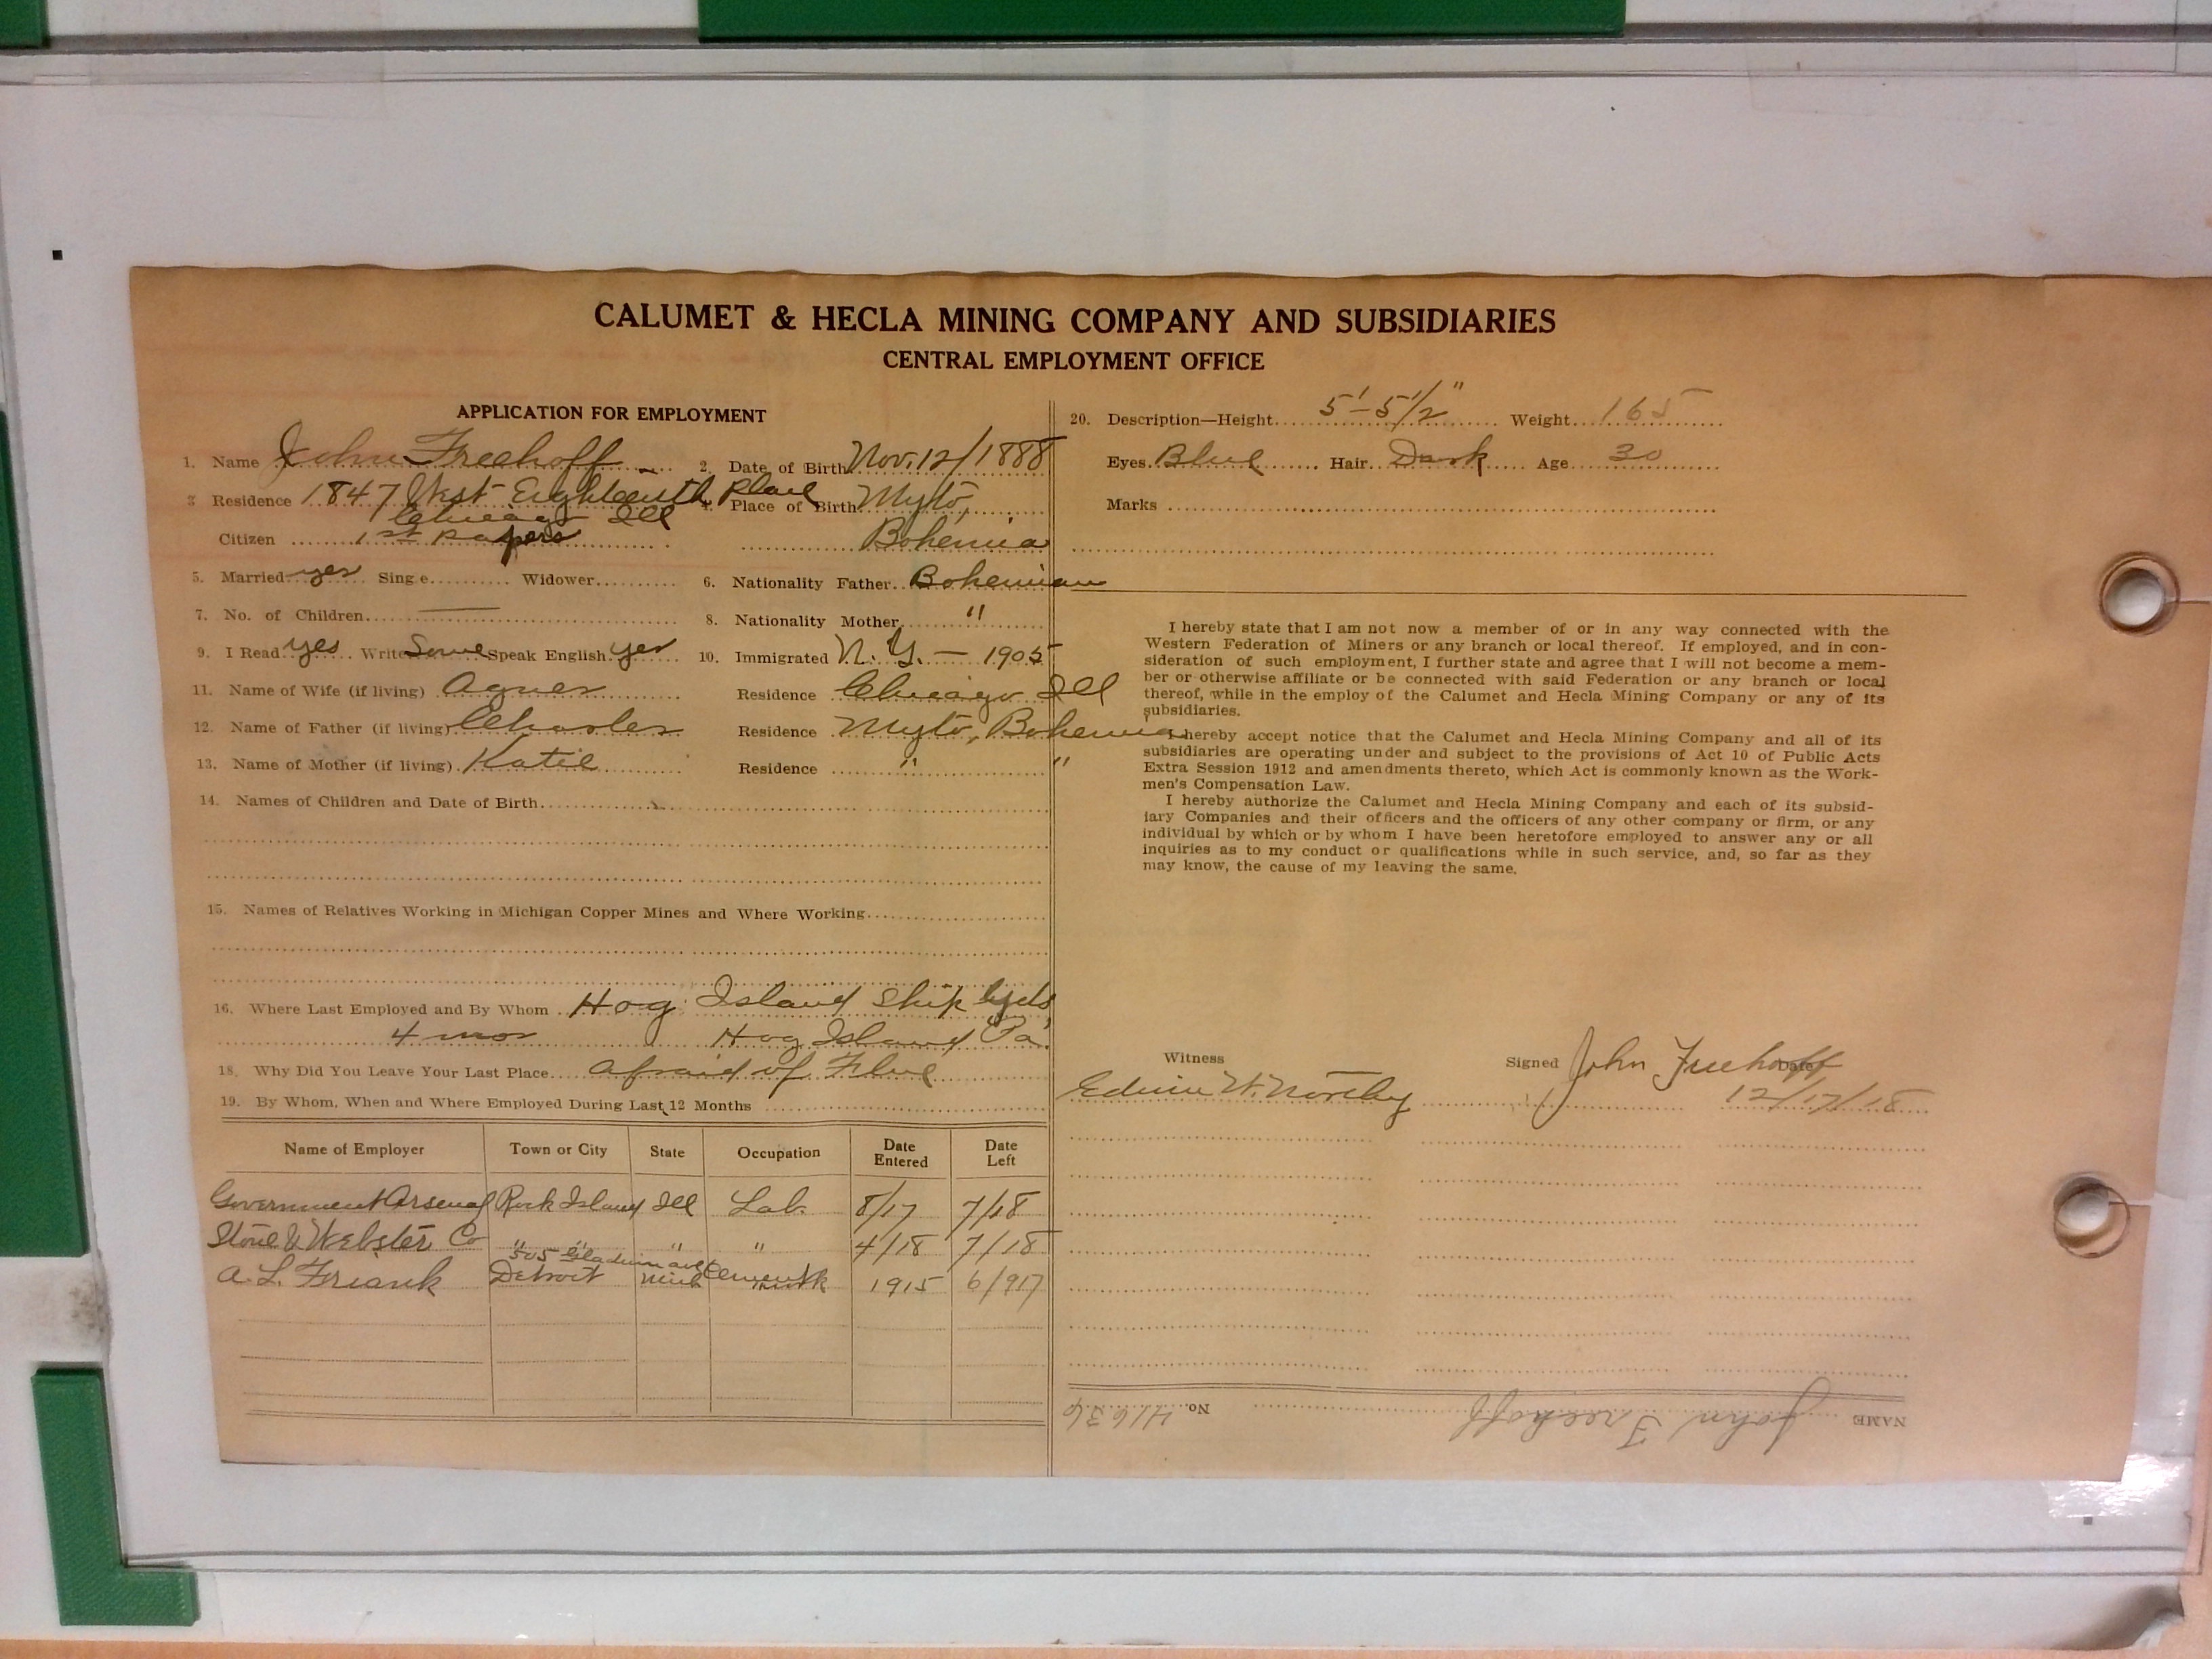 CALUMET & HECLA MINING COMPANY AND SUBSIDIARIES
CENTRAL EMPLOYMENT OFFICE
APPLICATION FOR EMPLOYMENT
1. Name John Freehoff 2. Date of Birth Nov. 12/1888
3 Residence 1847 West Eighteenth Place 4. Place of Birth Myto,
Chicago Ill
Citizen 1st papers Bohemia
5. Married yes Single Widower 6. Nationality Father Bohemian
7. No. of Children — 8. Nationality Mother "
9. I Read yes Write Some Speak English yes 10. Immigrated N.Y. — 1905
11. Name of Wife (if living) Agnes Residence Chicago Ill
12. Name of Father (if living) Charles Residence Myto, Bohemia
13. Name of Mother (if living) Katie Residence " "
14. Names of Children and Date of Birth
15. Names of Relatives Working in Michigan Copper Mines and Where Working
16. Where Last Employed and By Whom Hog Island Ship Yds
4 mos Hog Island Pa.
18. Why Did You Leave Your Last Place afraid of Flue
19. By Whom, When and Where Employed During Last 12 Months
Name of Employer Town or City State Occupation Date Entered Date Left
Government Arsenal Rock Island Ill Lab. 8/17 7/18
Stone & Webster Co " " " " 4/18 7/18
505 ave
A. L. Friank Detroit Mich Cement 1915 6/917
20. Description—Height 5'-5 1/2" Weight 165
Eyes Blue Hair Dark Age 30
Marks
I hereby state that I am not now a member of or in any way connected with the
Western Federation of Miners or any branch or local thereof. If employed, and in con-
sideration of such employment, I further state and agree that I will not become a mem-
ber or otherwise affiliate or be connected with said Federation or any branch or local
thereof, while in the employ of the Calumet and Hecla Mining Company or any of its
subsidiaries.
hereby accept notice that the Calumet and Hecla Mining Company and all of its
subsidiaries are operating under and subject to the provisions of Act 10 of Public Acts
Extra Session 1912 and amendments thereto, which Act is commonly known as the Work-
men's Compensation Law.
I hereby authorize the Calumet and Hecla Mining Company and each of its subsid-
iary Companies and their officers and the officers of any other company or firm, or any
individual by which or by whom I have been heretofore employed to answer any or all
inquiries as to my conduct or qualifications while in such service, and, so far as they
may know, the cause of my leaving the same.
Witness Signed John Freehoff Date
Edwin W. Northey 12/17/18
NAME John Freehoff No. 41636